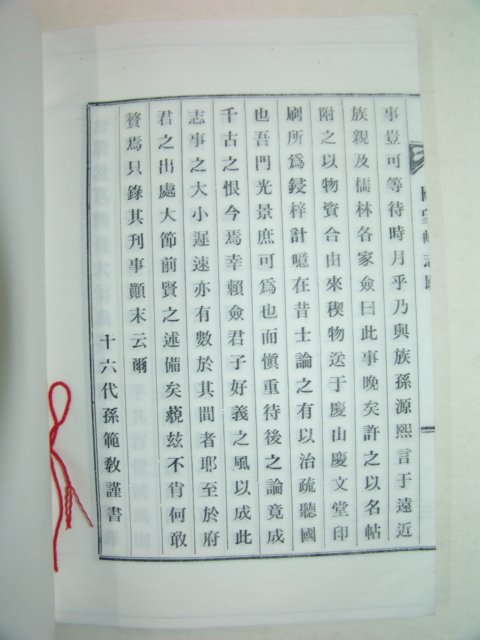 事豈可等待時月乎乃與族孫源熙言于遠近
族親及儒林各家僉曰此事晚矣許之以名帖
附之以物資合由來稧物送于慶山慶文堂印
刷所爲鋟梓計噫在昔士論之有以治疏聽國
也吾門光景庶可爲也而愼重待後之論竟成
千古之恨今焉幸賴僉君子好義之風以成此
志事之大小遲速亦有數於其間者耶至於府
君之出處大節前賢之述備矣藐玆不肖何敢
贅焉只錄其刊事顚末云爾
十六代孫範敎謹書